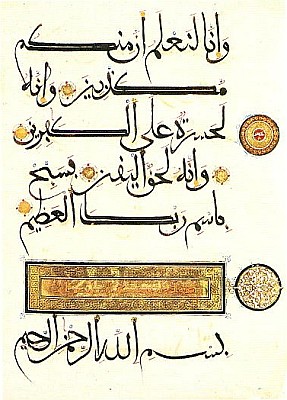 وانا لنعلم ان منكم
مكذبين وانه
لحسرة على الكفرين
وانه لحق اليقين فسبح
باسم ربك العظيم
بسم الله الرحمن الرحيم